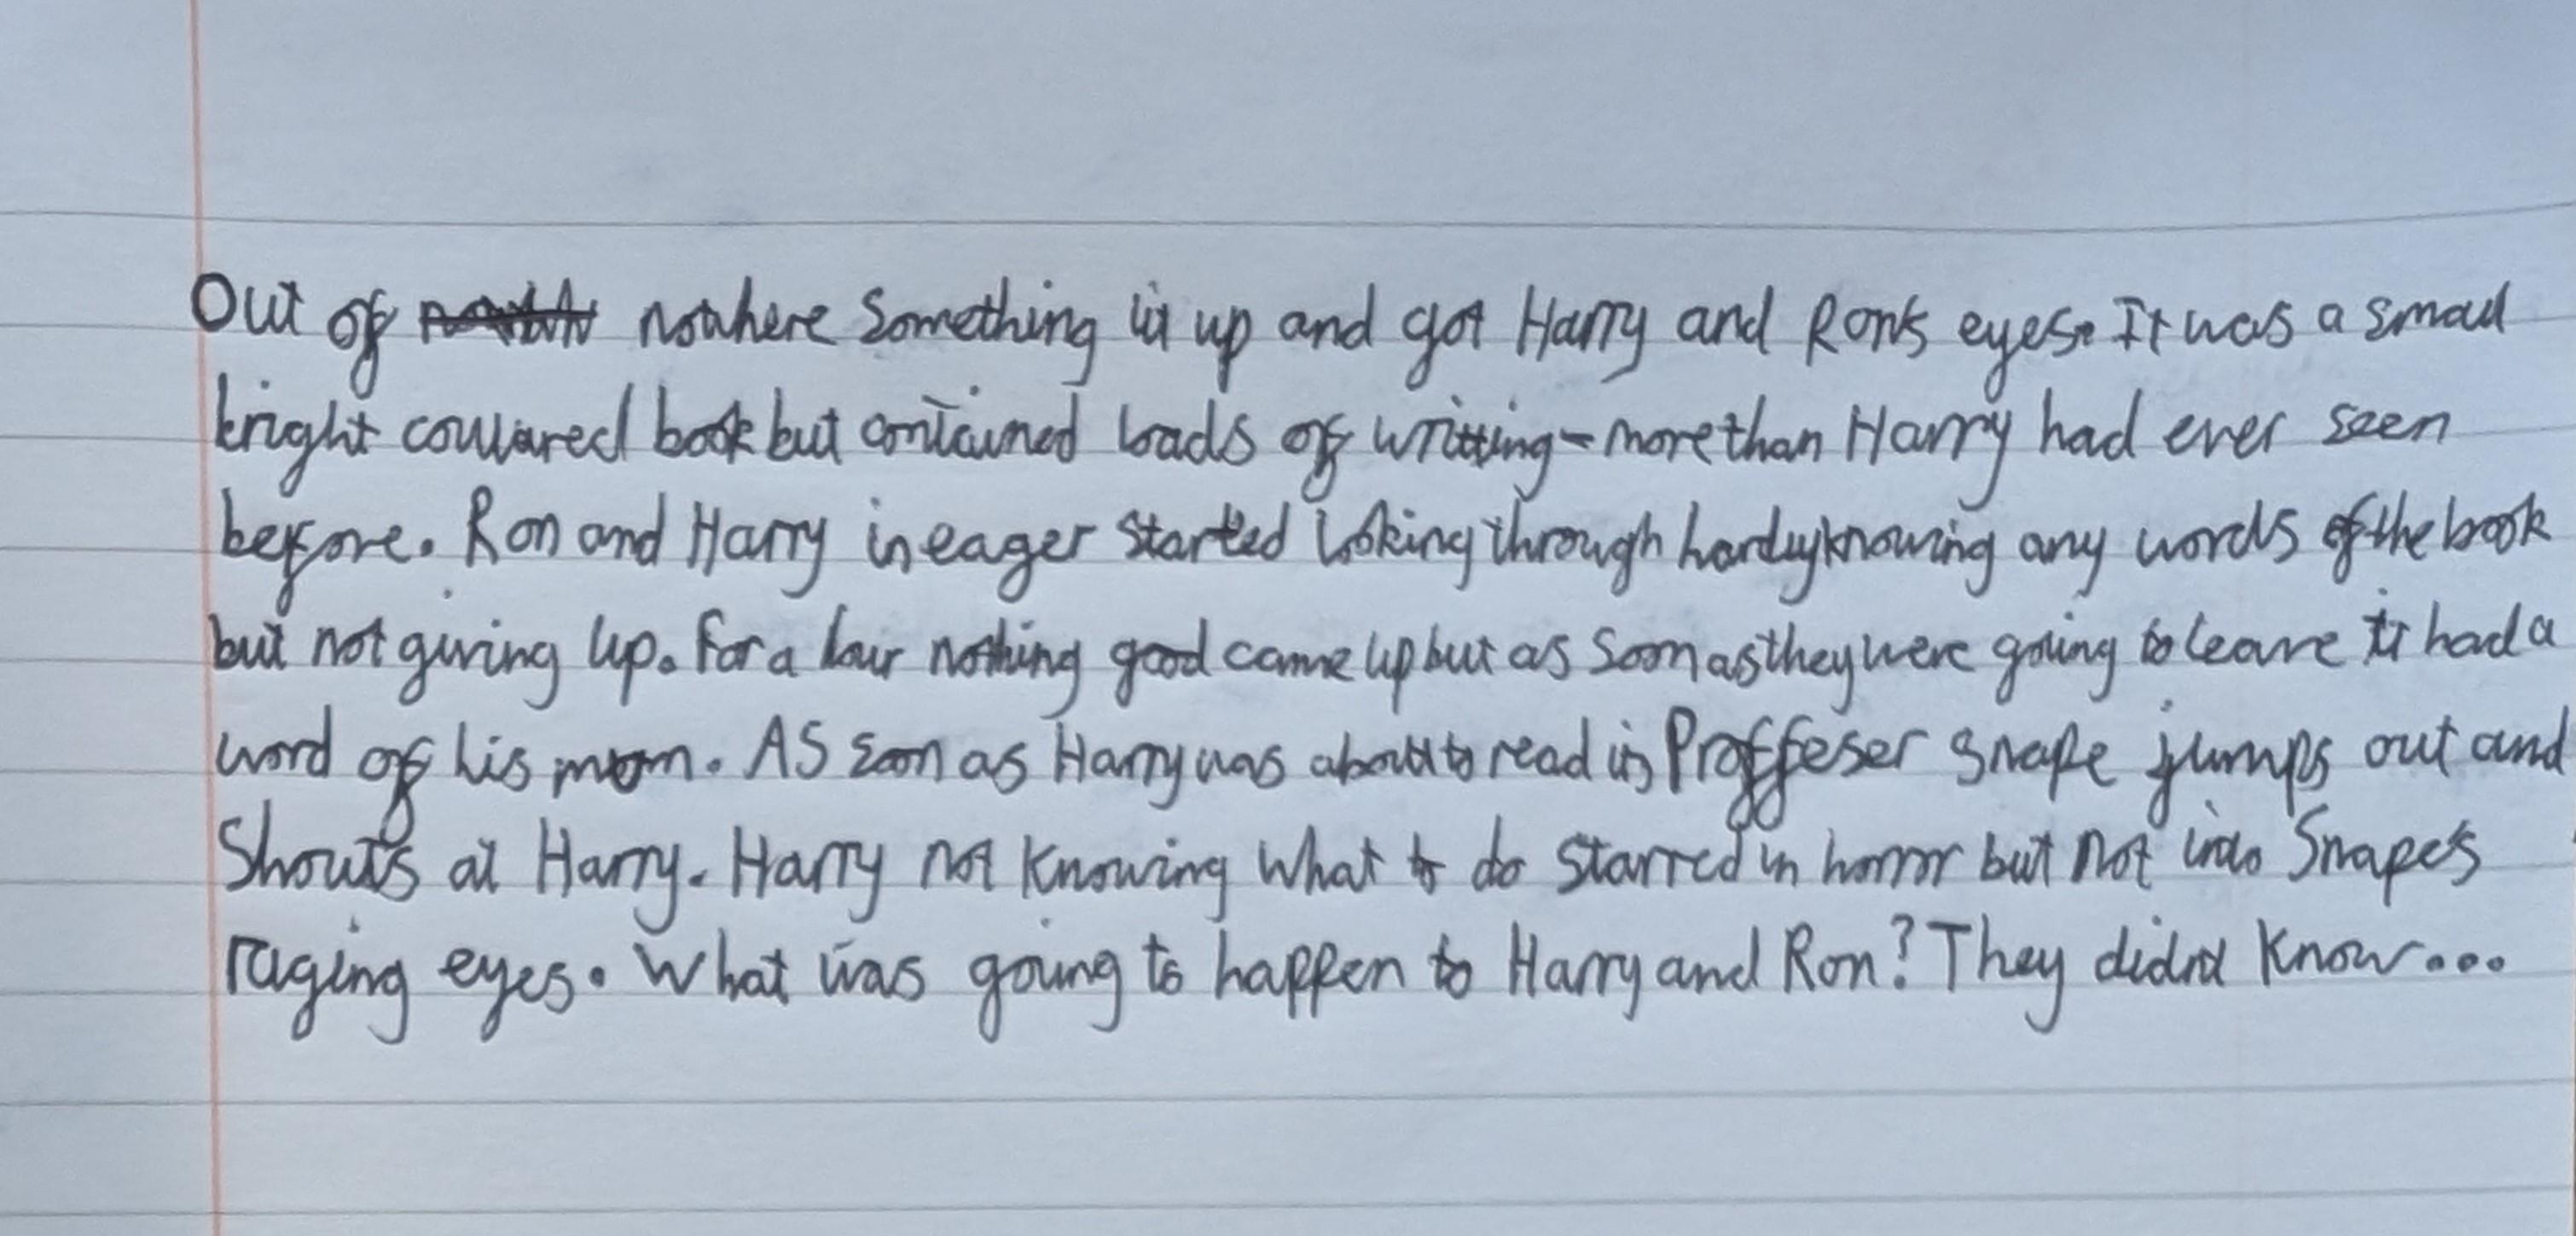 Out of nowhere Something lit up and got Harry and Ron's eyes. It was a small
bright coulared book but contained loads of writting - more than Harry had ever seen
before. Ron and Harry in eager started looking through hardly knowing any words of the book
but not giving up. For a hour nothing good came up but as soon as they were going to leave it had a
word of his mom. As soon as Harry was about to read it, Proffeser Snape jumps out and
Shouts at Harry. Harry not knowing what to do starred in horror but not into Snape's
raging eyes. What was going to happen to Harry and Ron? They didn't know...